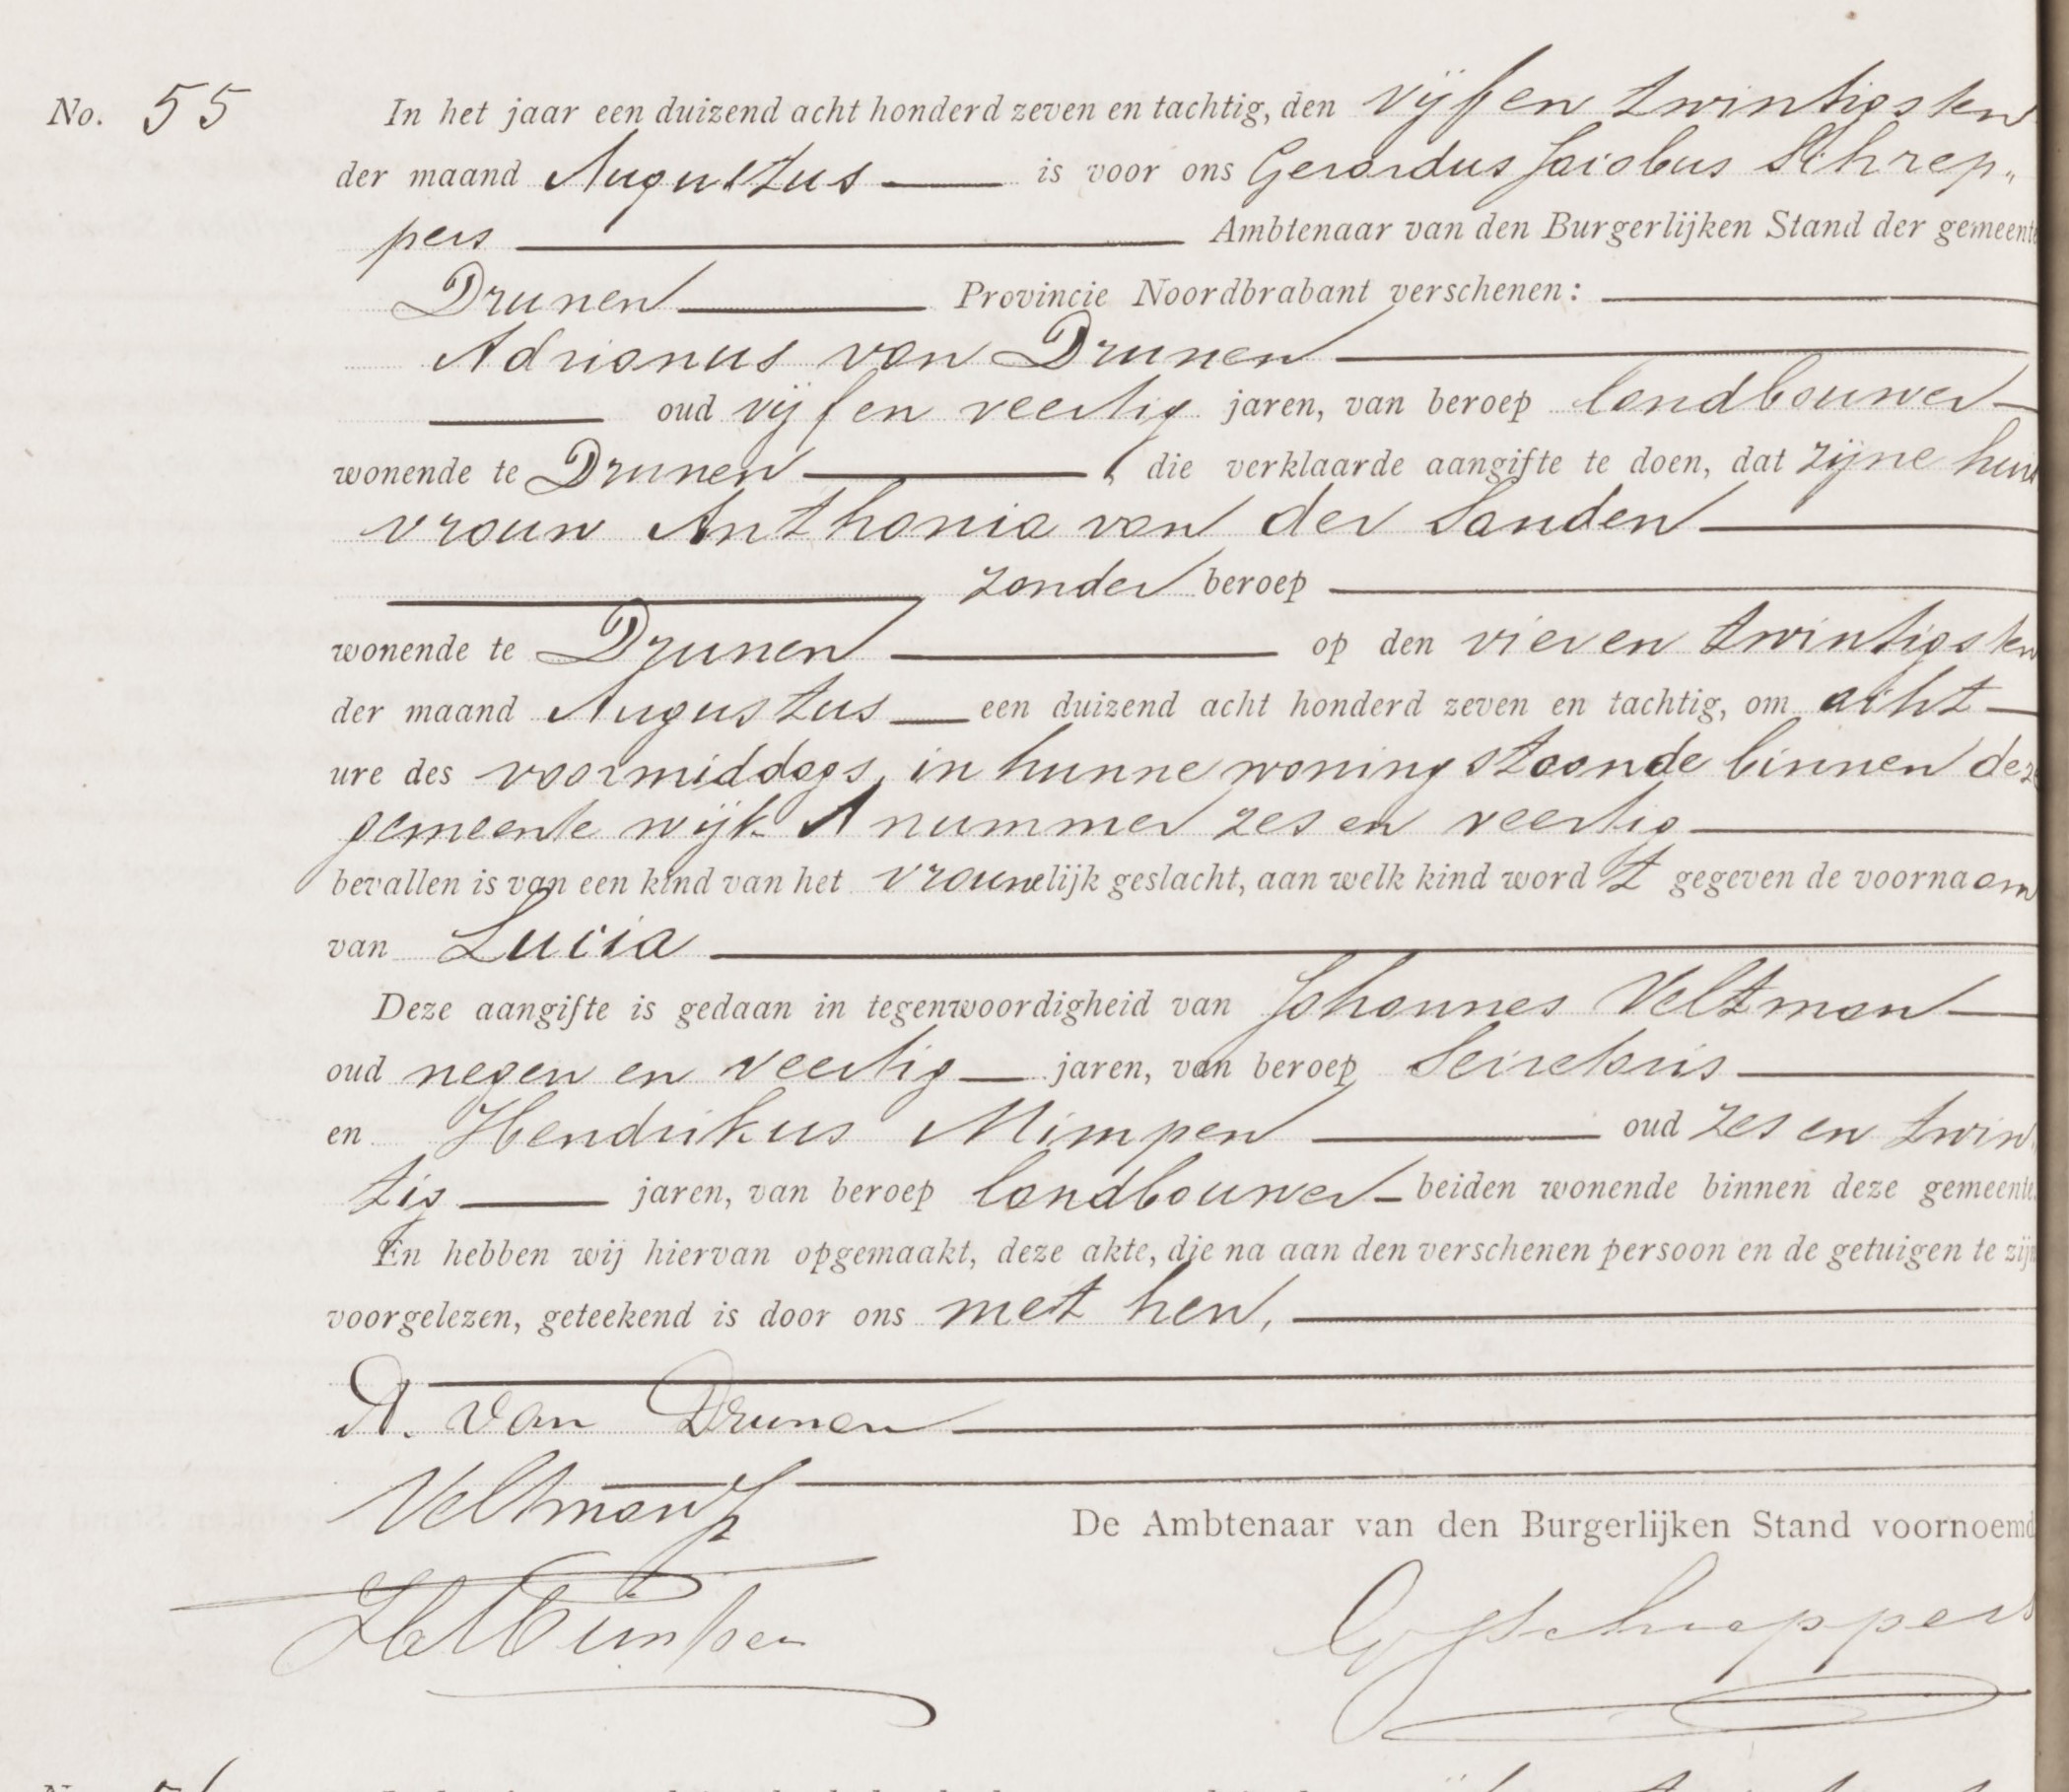 No. 55 In het jaar een duizend acht honderd zeven en tachtig, den vijf en twintigsten
der maand Augustus is voor ons Gerardus Jacobus Schrep„
pers Ambtenaar van den Burgerlijken Stand der gemeente
Drunen Provincie Noordbrabant verschenen:
Adrianus van Drunen
oud vijf en veertig jaren, van beroep landbouwer
wonende te Drunen, die verklaarde aangifte te doen, dat zijne huis
vrouw Anthonia van der Sanden
zonder beroep
wonende te Drunen op den vier en twintigsten
der maand Augustus een duizend acht honderd zeven en tachtig, om acht
ure des voormiddags, in hunne woning staande binnen deze
gemeente wijk A nummer zes en veertig
bevallen is van een kind van het vrouwelijk geslacht, aan welk kind wordt gegeven de voornaam
van Lucia
Deze aangifte is gedaan in tegenwoordigheid van Johannes Veltman
oud negen en veertig jaren, van beroep Secretaris
en Hendrikus Mimpen oud zes en twin
tig jaren, van beroep landbouwer beiden wonende binnen deze gemeente.
En hebben wij hiervan opgemaakt, deze akte, die na aan den verschenen persoon en de getuigen te zijn
voorgelezen, geteekend is door ons met hen,
A. van Drunen
Veltman
De Ambtenaar van den Burgerlijken Stand voornoemd
H Mimpen
GJSchreppers